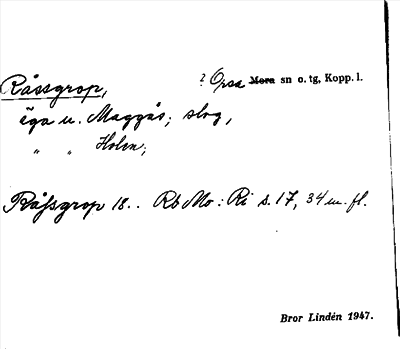 ? Orsa Mora sn o. tg, Kopp. l.
Råssgrop,
äga u. Maggås; slog,
" " Holen;
Råfsgrop 18.. Rb Mo: Ri s. 17, 34 m. fl.
Bror Lindén 1947.